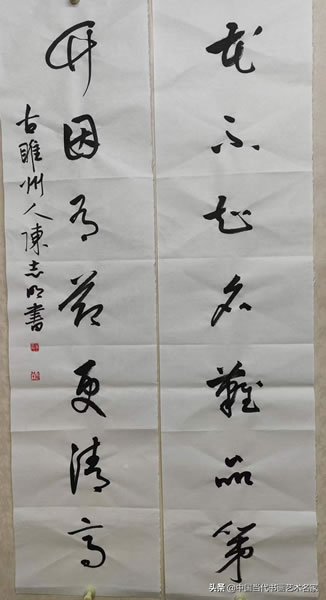 花不知名難品第
竹因有節更清高
古睢州人陳志明書
头条 @中国当代书画艺术名家